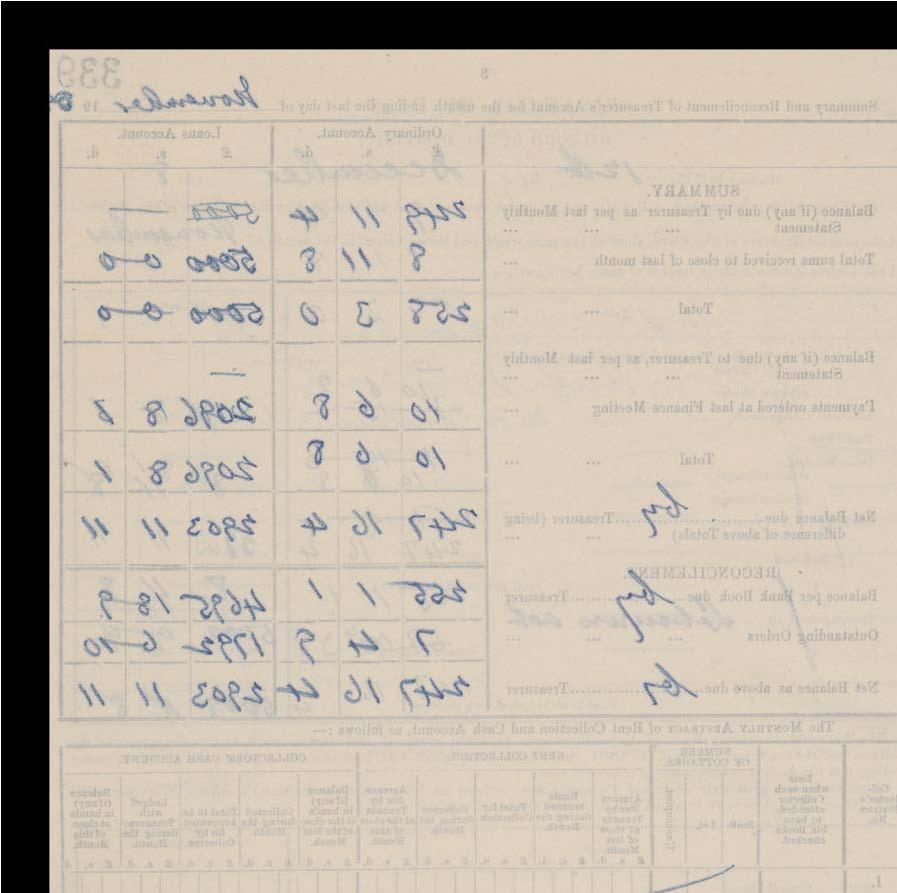 339
3
Summary and Reconcilement of Treasurer's Account for the month ending the last day of November 19
Ordinary Account. Loans Account.
£ s. d. £ s. d.
SUMMARY.
Balance (if any) due by Treasurer as per last Monthly
Statement ... ... ... 249 11 4 5000 —
Total sums received to close of last month ... 8 11 8 5000 0 0
Total ... ... 258 3 0 5000 0 0
Balance (if any) due to Treasurer, as per last Monthly
Statement ... ... ... — —
Payments ordered at last Finance Meeting ... 10 6 8 2096 8 1
Total ... ... 10 6 8 2096 8 1
Net Balance due by Treasurer (being
difference of above Totals) ... ... 247 16 4 2903 11 11
RECONCILEMENT.
Balance per Bank Book due by Treasurer 255 1 1 4695 18 9
Outstanding Orders ... ... ... 7 4 9 1792 6 10
Net Balance as above due by Treasurer 247 16 4 2903 11 11
The Monthly Abstract of Rent Collection and Cash Account, as follows :—
NUMBER OF COTTAGES. RENT COLLECTION. COLLECTORS' CASH ACCOUNT.
Collector's District No.
Date when each Collector attended to have his Books checked.
Built.
Let.
Arrears due by Tenants at close of last Month.
Rents accrued during the Month.
Total for Collection.
Collected during the Month.
Arrears due by Tenants at close of this Month.
Balance (if any) in hands at close of the last Month.
Collected during the Month.
Total to be Accounted for by Collector.
Lodged with Treasurer during the Month.
Balance (if any) in hands at close of this Month.
£ s. d. £ s. d. £ s. d. £ s. d. £ s. d. £ s. d. £ s. d. £ s. d. £ s. d. £ s. d.
1.